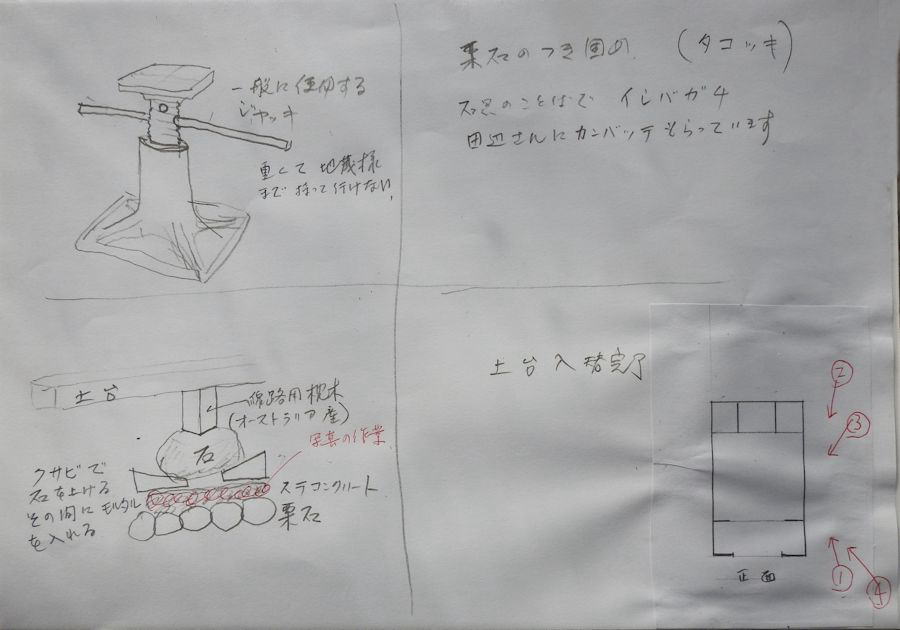 一般に使用する
ジャッキ
重くて地蔵様
まで持って行けない、
栗石のつき固め (タコツキ)
のことばで イシバガチ
田辺さんにガンバッテもらっています
土台
線路用枕木
(オーストラリア産)
写真の作業
石
クサビで
石を上げる
その間にモルタル
を入れる
ステコンクリート
栗石
土台入替完了
②
③
①
④
正面